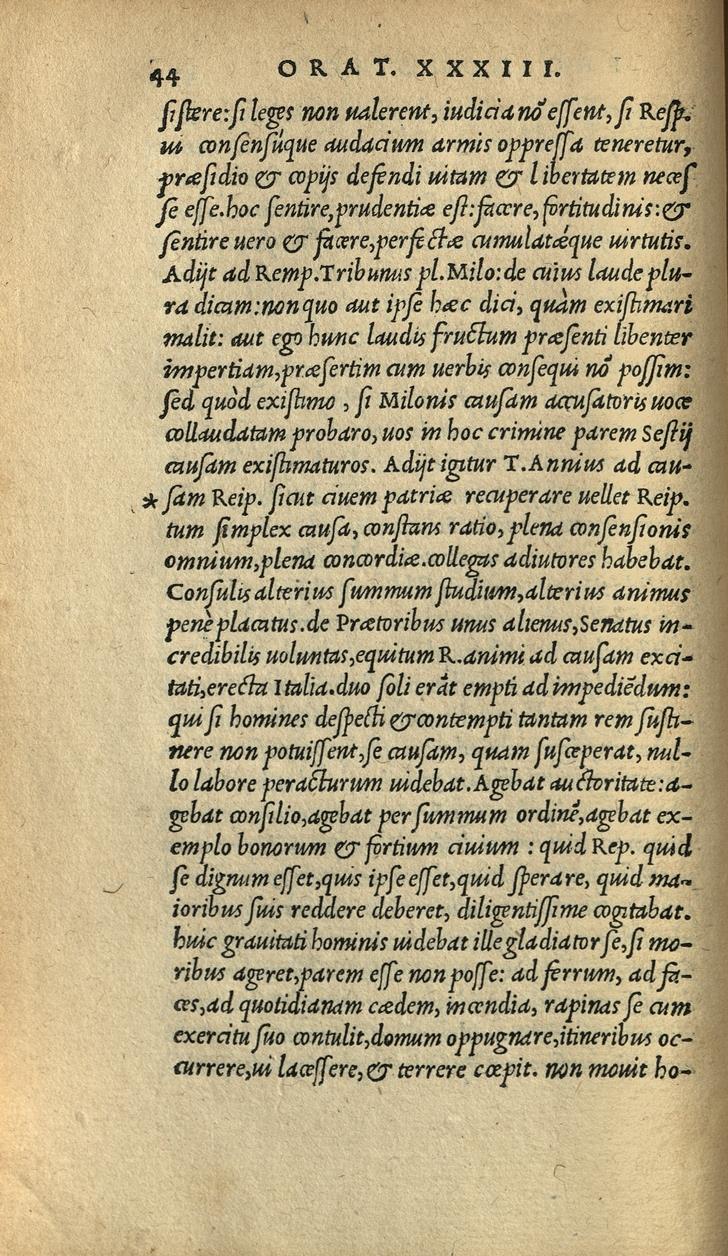 44 ORAT. XXXIII.
ſiſtere: ſi leges non ualerent, iudicia nō eſſent, ſi Reſp.
ui conſenſúque audacium armis oppreſſa teneretur,
præſidio & copijs defendi uitam & libertatem neceſ
ſe eſſe. hoc ſentire, prudentiæ eſt: facere, fortitudinis: &
ſentire uero & facere, perfectæ cumulatǽque uirtutis.
Adijt ad Remp. Tribunus pl. Milo: de cuius laude plu-
ra dicam: non quo aut ipſe hæc dici, quàm exiſtimari
malit: aut ego hunc laudis fructum præſenti libenter
impertiam, præſertim cum uerbis conſequi nō poſſim:
ſed quòd exiſtimo, ſi Milonis cauſam accuſatoris uoce
collaudatam probaro, uos in hoc crimine parem Seſtij
cauſam exiſtimaturos. Adijt igitur T. Annius ad cau-
* ſam Reip. ſicut ciuem patriæ recuperare uellet Reip.
tum ſimplex cauſa, conſtans ratio, plena conſenſionis
omnium, plena concordiæ. collegas adiutores habebat.
Conſulis alterius ſummum ſtudium, alterius animus
penè placatus. de Prætoribus unus alienus, Senatus in-
credibilis uoluntas, equitum R. animi ad cauſam exci-
tati, erecta Italia. duo ſoli erāt empti ad impediēdum:
qui ſi homines deſpecti & contempti tantam rem ſuſti-
nere non potuiſſent, ſe cauſam, quam ſuſceperat, nul-
lo labore peracturum uidebat. Agebat auctoritate: a-
gebat conſilio, agebat per ſummum ordinē, agebat ex-
emplo bonorum & fortium ciuium: quid Rep. quid
ſe dignum eſſet, quis ipſe eſſet, quid ſperare, quid ma-
ioribus ſuis reddere deberet, diligentiſſime cogitabat.
huic grauitati hominis uidebat ille gladiator ſe, ſi mo-
ribus ageret, parem eſſe non poſſe: ad ferrum, ad fa-
ces, ad quotidianam cædem, incendia, rapinas ſe cum
exercitu ſuo contulit, domum oppugnare, itineribus oc-
currere, ui laceſſere, & terrere cœpit. non mouit ho-